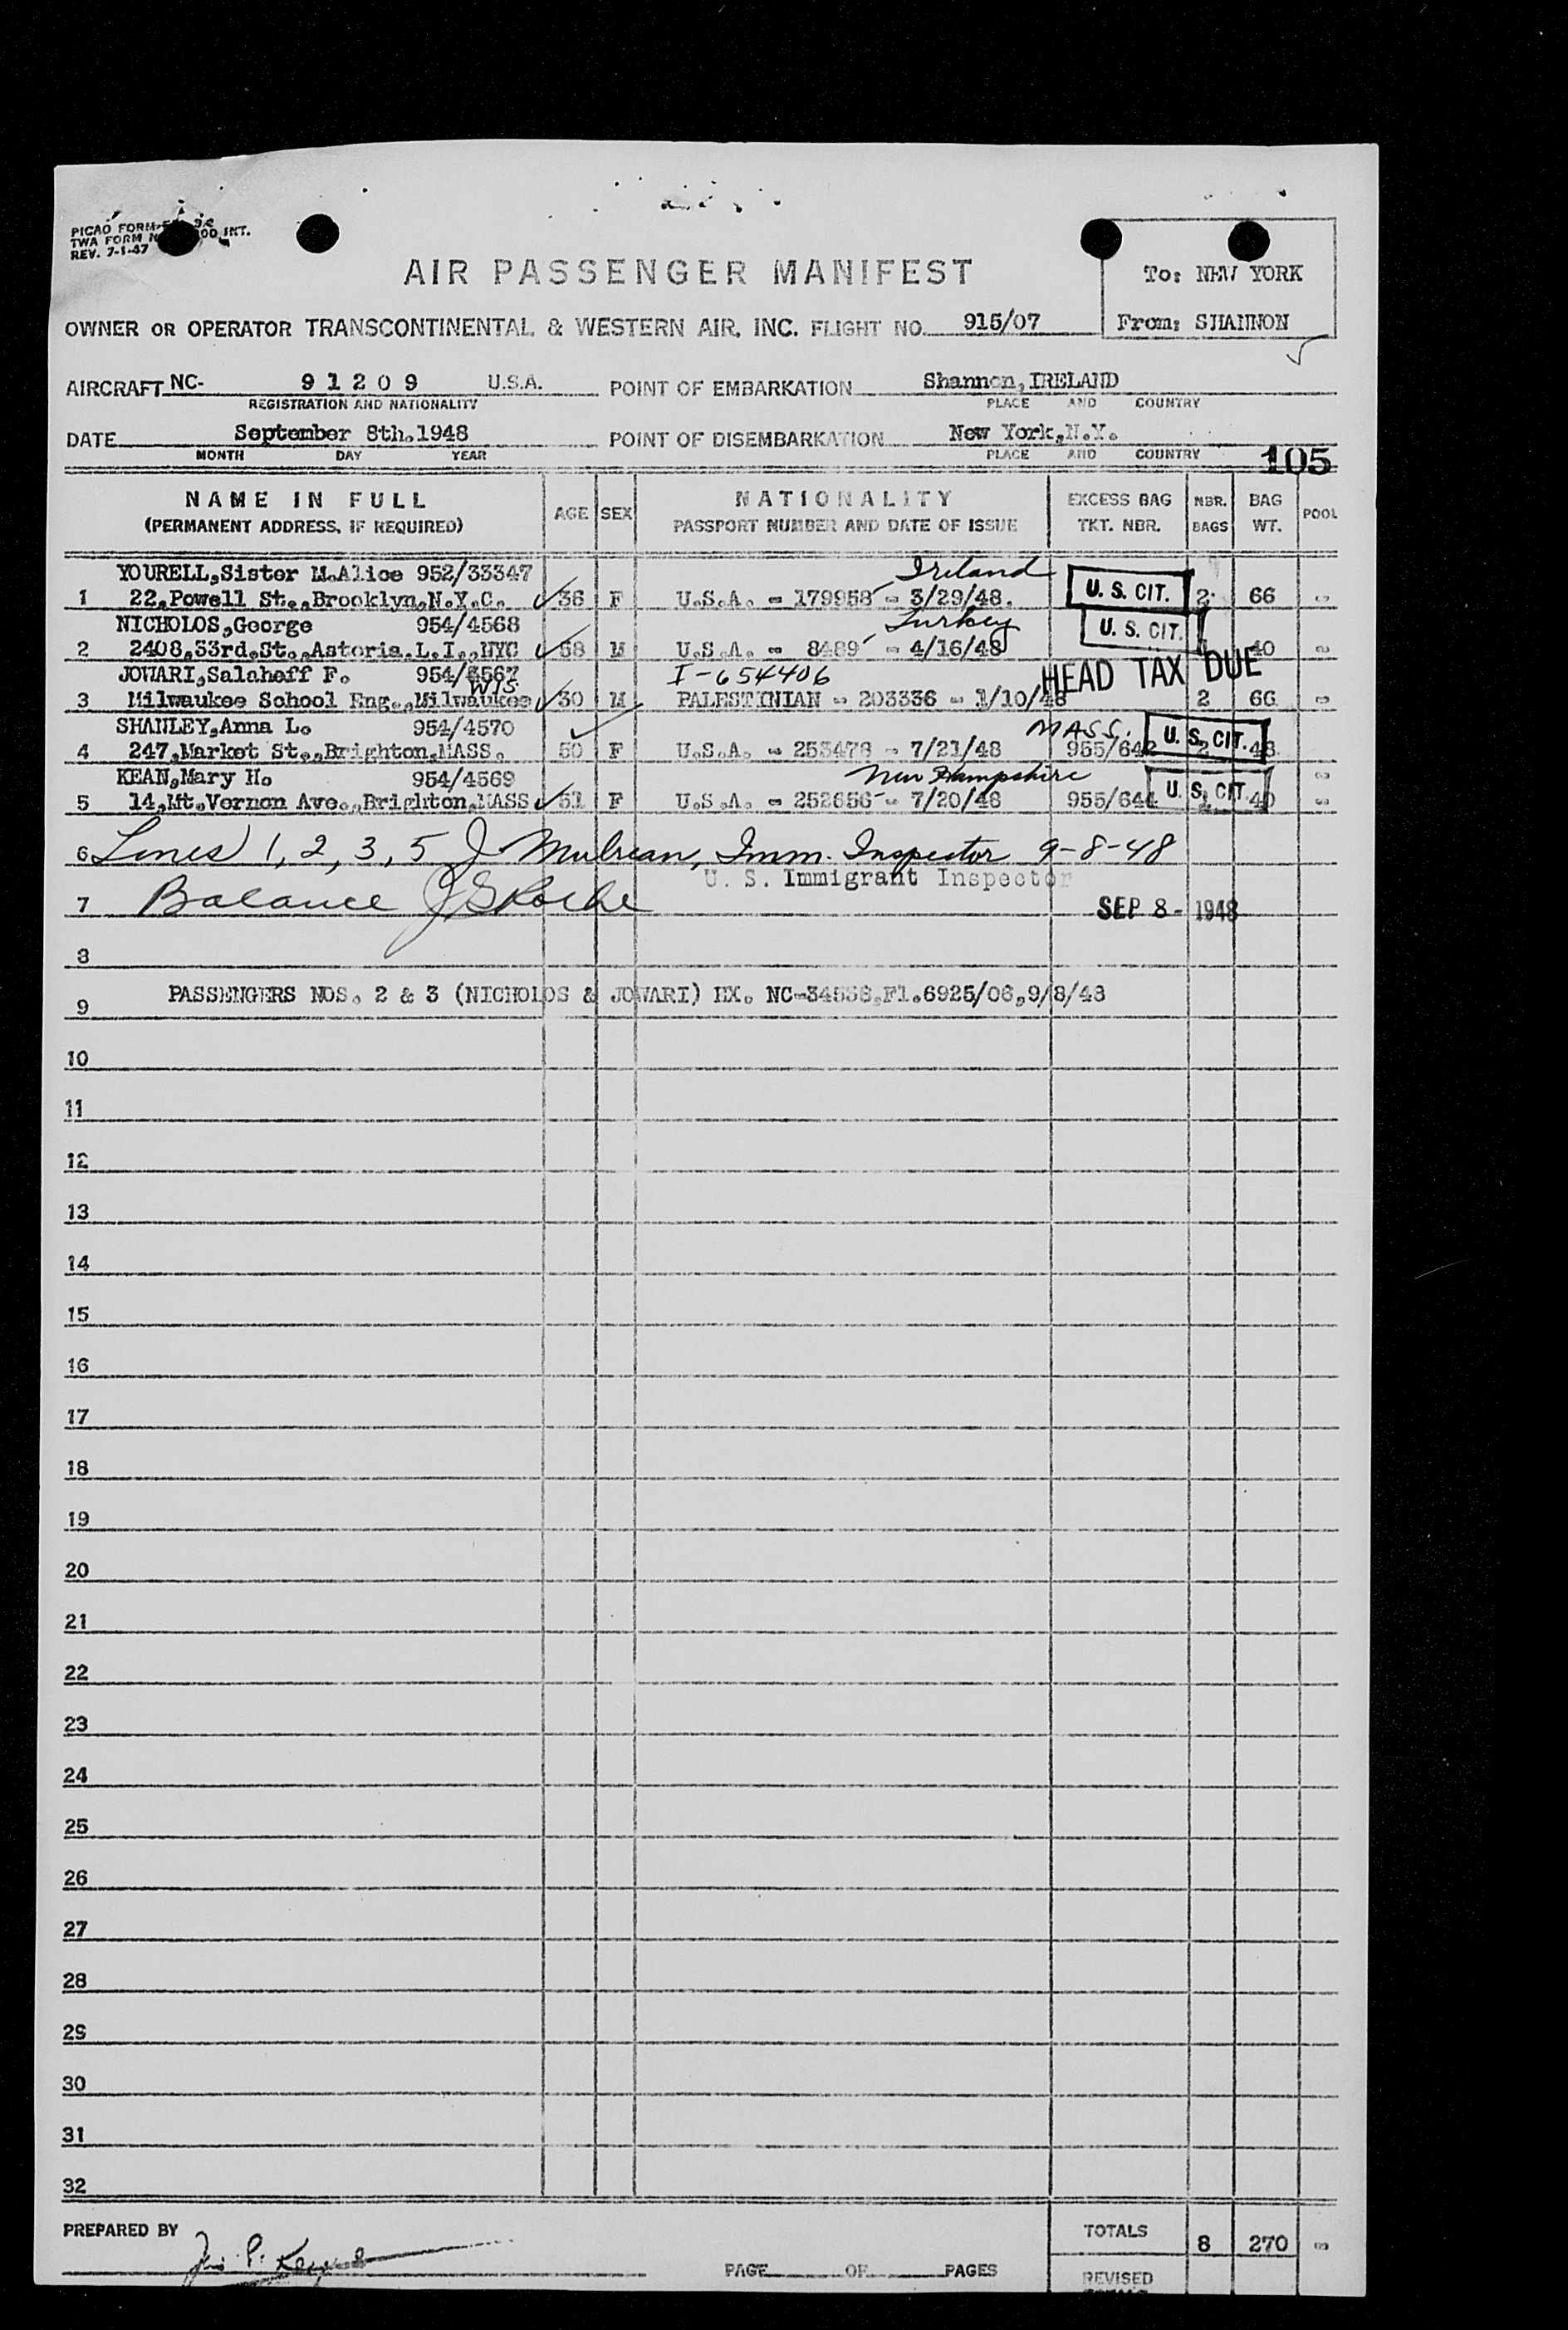 PICAO FORM
TWA FORM N 00 INT.
REV. 7-1-47
AIR PASSENGER MANIFEST
To: NEW YORK
From: SHANNON
OWNER OR OPERATOR TRANSCONTINENTAL & WESTERN AIR, INC. FLIGHT NO. 915/07
AIRCRAFT NC- 91209 U.S.A. POINT OF EMBARKATION Shannon, IRELAND
REGISTRATION AND NATIONALITY PLACE AND COUNTRY
DATE September 8th.1948 POINT OF DISEMBARKATION New York,N.Y.
MONTH DAY YEAR PLACE AND COUNTRY
105
NAME IN FULL AGE SEX NATIONALITY EXCESS BAG NBR. BAG POOL
(PERMANENT ADDRESS, IF REQUIRED) PASSPORT NUMBER AND DATE OF ISSUE TKT. NBR. BAGS WT.
YOURELL,Sister M.Alice 952/33347 Ireland
1 22,Powell St.,Brooklyn,N.Y.C. 36 F U.S.A. - 179958 - 3/29/48. U. S. CIT. 2 66
NICHOLOS,George 954/4568 Turkey
2 2408,33rd.St.,Astoria.L.I.,NYC 58 M U.S.A. - 8489 - 4/16/48 U. S. CIT. 40
JOWARI,Salaheff F. 954/4567 I-654406 HEAD TAX DUE
WIS
3 Milwaukee School Eng.,Milwaukee 30 M PALESTINIAN - 203336 - 1/10/48 2 66
SHANLEY,Anna L. 954/4570 MASS.
4 247,Market St.,Brighton,MASS. 50 F U.S.A. - 253478 - 7/21/48 955/642 U. S. CIT. 2 48
KEAN,Mary H. 954/4569 New Hampshire
5 14,Mt.Vernon Ave.,Brighton,MASS 51 F U.S.A. - 252656 - 7/20/48 955/644 U. S. CIT. 40
6 Lines 1, 2, 3, 5 J Mulrean, Imm. Inspector 9-8-48
U. S. Immigrant Inspector
7 Balance J S Roche SEP 8 - 1948
8
9 PASSENGERS NOS. 2 & 3 (NICHOLOS & JOWARI) EX. NC-34538,Fl.6925/06,9/8/48
10
11
12
13
14
15
16
17
18
19
20
21
22
23
24
25
26
27
28
29
30
31
32
PREPARED BY
TOTALS 8 270
PAGE OF PAGES
REVISED